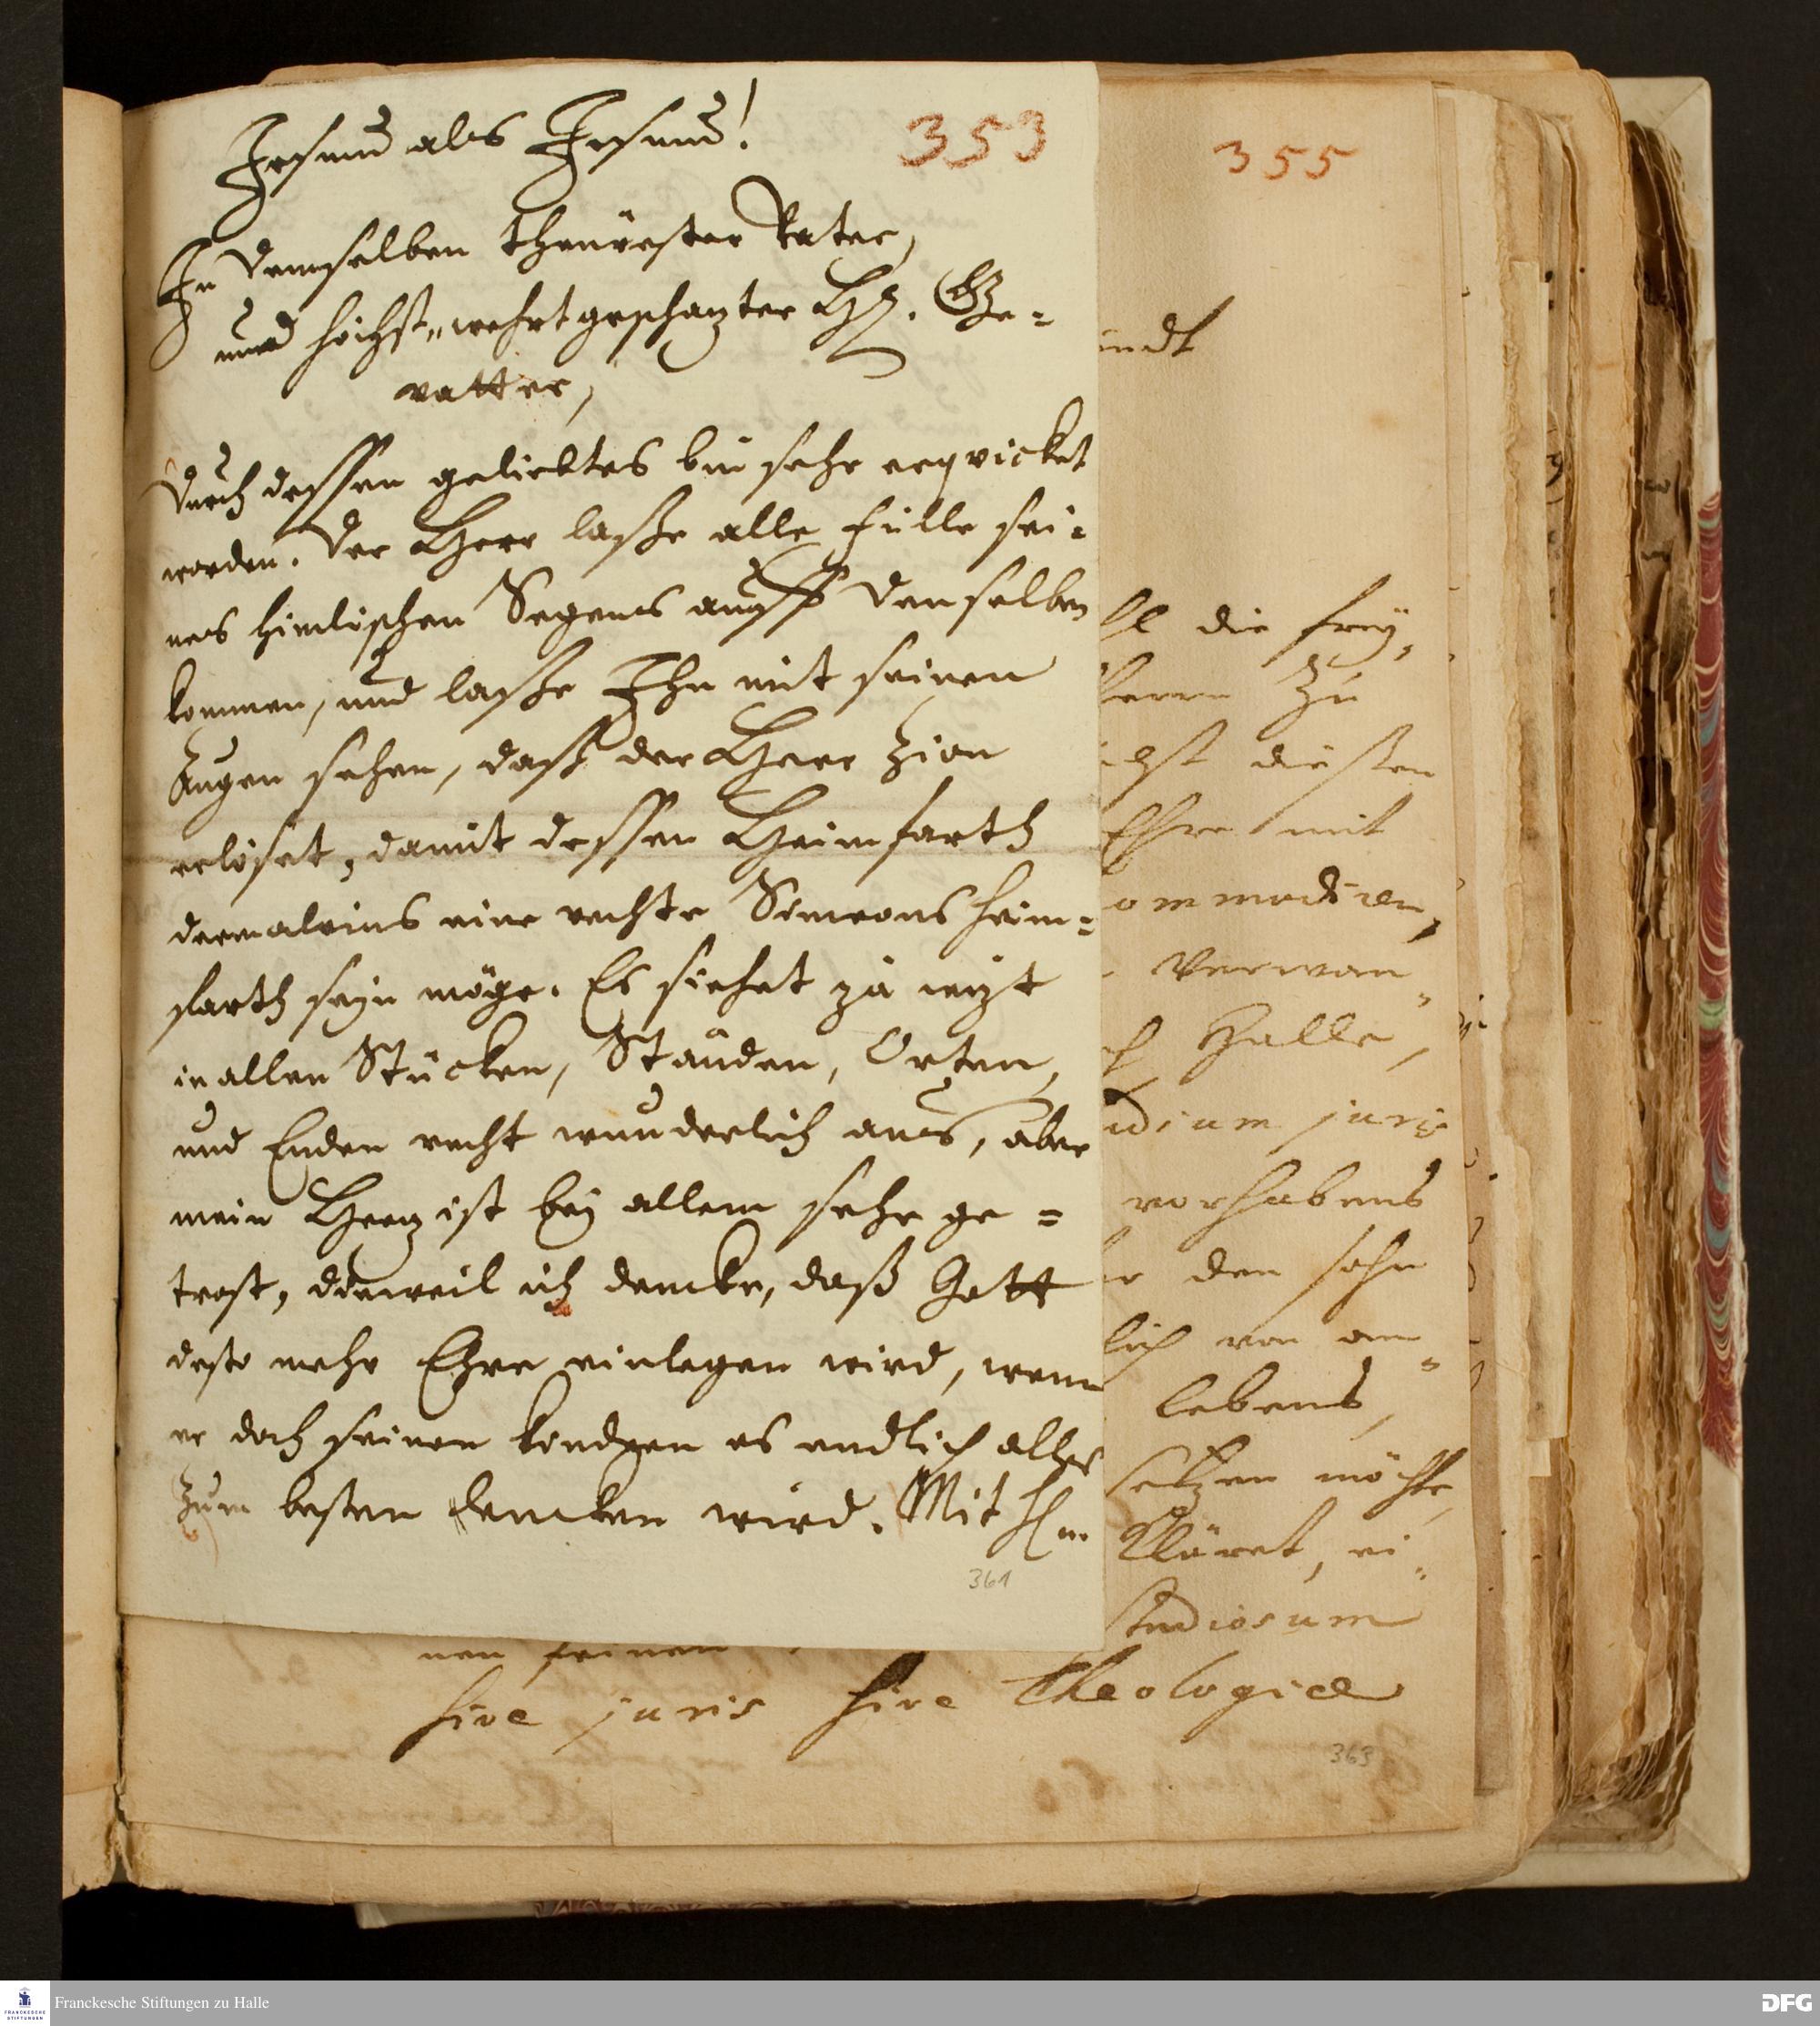 Jesum als Jesum!
353
In demselben theurester Vater,
und höchst-wehrtgeschazter H. Ge-
vatter,
durch dessen geliebtes bin sehr erqvicket
worden. Der Herr laße alle Fülle sei-
nes himlischen Segens auff denselben
kommen, und laße Ihn mit seinen
Augen sehen, daß der Herr Zion
erlöset, damit dessen Heimfarth
dermaleins eine rechte Simeons heim-
farth seyn möge. Es siehet zu iezt
in allen Stücken, Ständen, Orten,
und Enden recht wunderlich aus, aber
mein Herz ist bey allem sehr ge-
trost, dieweil ich dencke, daß Gott
desto mehr Ehre einlegen wird, wenn
er doch seinen Kindern es endlich alles
zum besten lencken wird. Mit
361
355
indt
die frey,
herrn zu
diesen
Ehre mit
ommodiren,
Verwan
Halle,
dium juris
vorhabens
den sohn
lich von
lebens,
setzen möchte,
kläret, ei-
studiosum
nen feinen
sive juris sive Theologiae
363
Franckesche Stiftungen zu Halle
FRANCKESCHE STIFTUNGEN
DFG